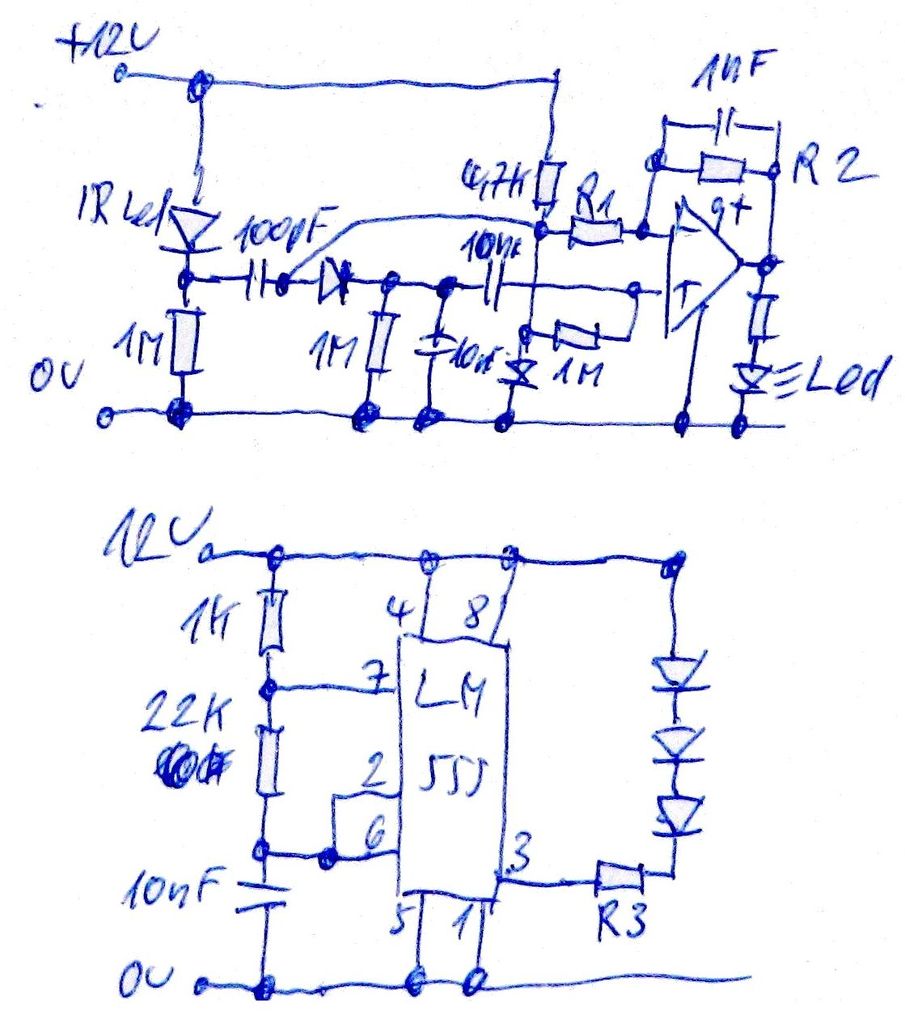 +12V
1nF
4,7K
R1
R2
IR Led
100pF
10nF
g+
1M
1M
10nF
1M
Led
0V
12V
1K
4
8
7
LM
22K
555
2
6
3
10nF
R3
5
1
0V